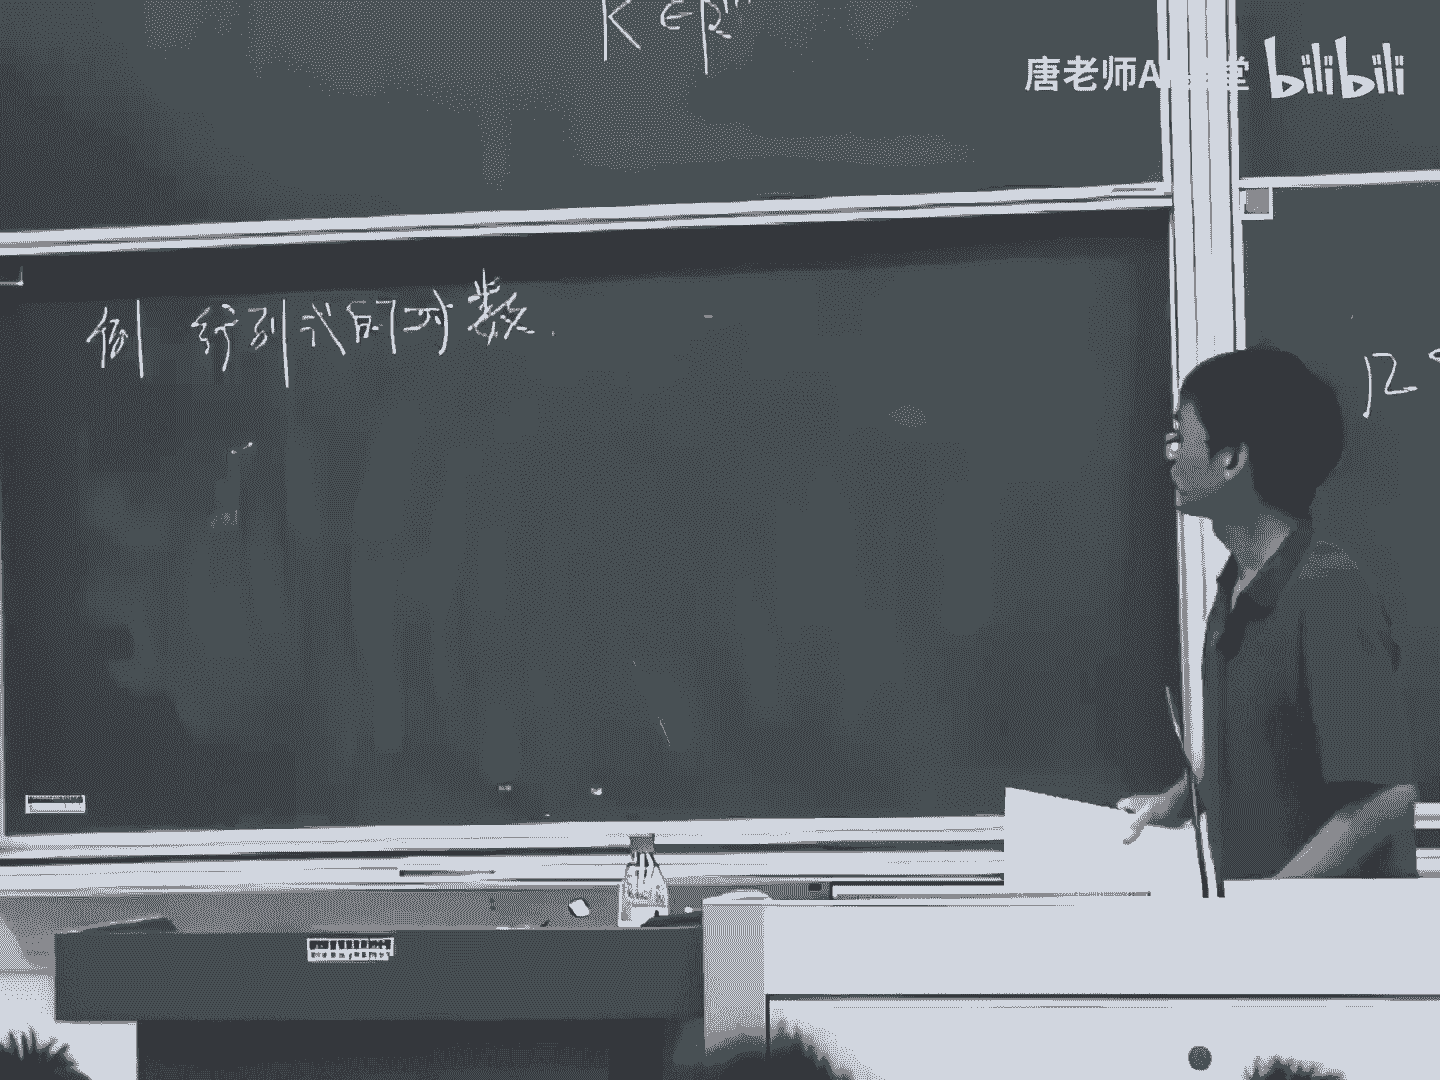 K ∈ R
唐老师A 堂 bilibili
例 行列式的对数.